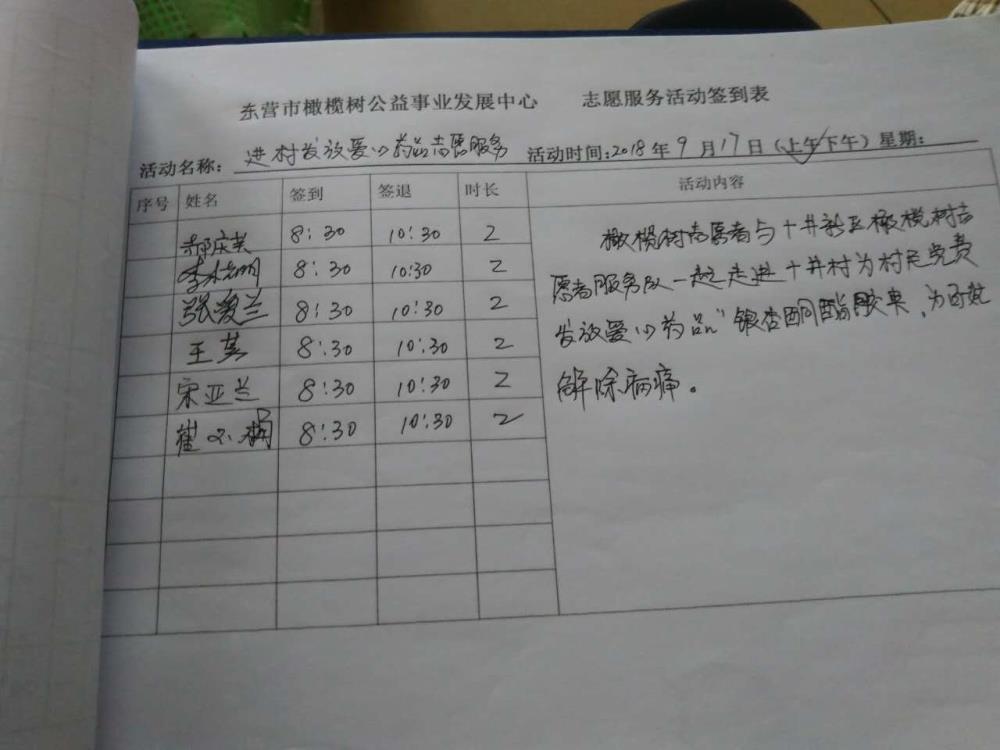 东营市橄榄树公益事业发展中心 志愿服务活动签到表
活动名称: 进村发放爱心药品志愿服务 活动时间:2018年9月17日(上午/下午)星期:
序号 姓名 签到 签退 时长 活动内容
郝庆美 8:30 10:30 2
李 8:30 10:30 2
张爱兰 8:30 10:30 2
王芸 8:30 10:30 2
宋亚兰 8:30 10:30 2
崔小娟 8:30 10:30 2
橄榄树志愿者与十井社区橄榄树志
愿者服务队一起走进十井村为村民免费
发放爱心药品"银杏酮酯胶囊,为百姓
解除病痛。